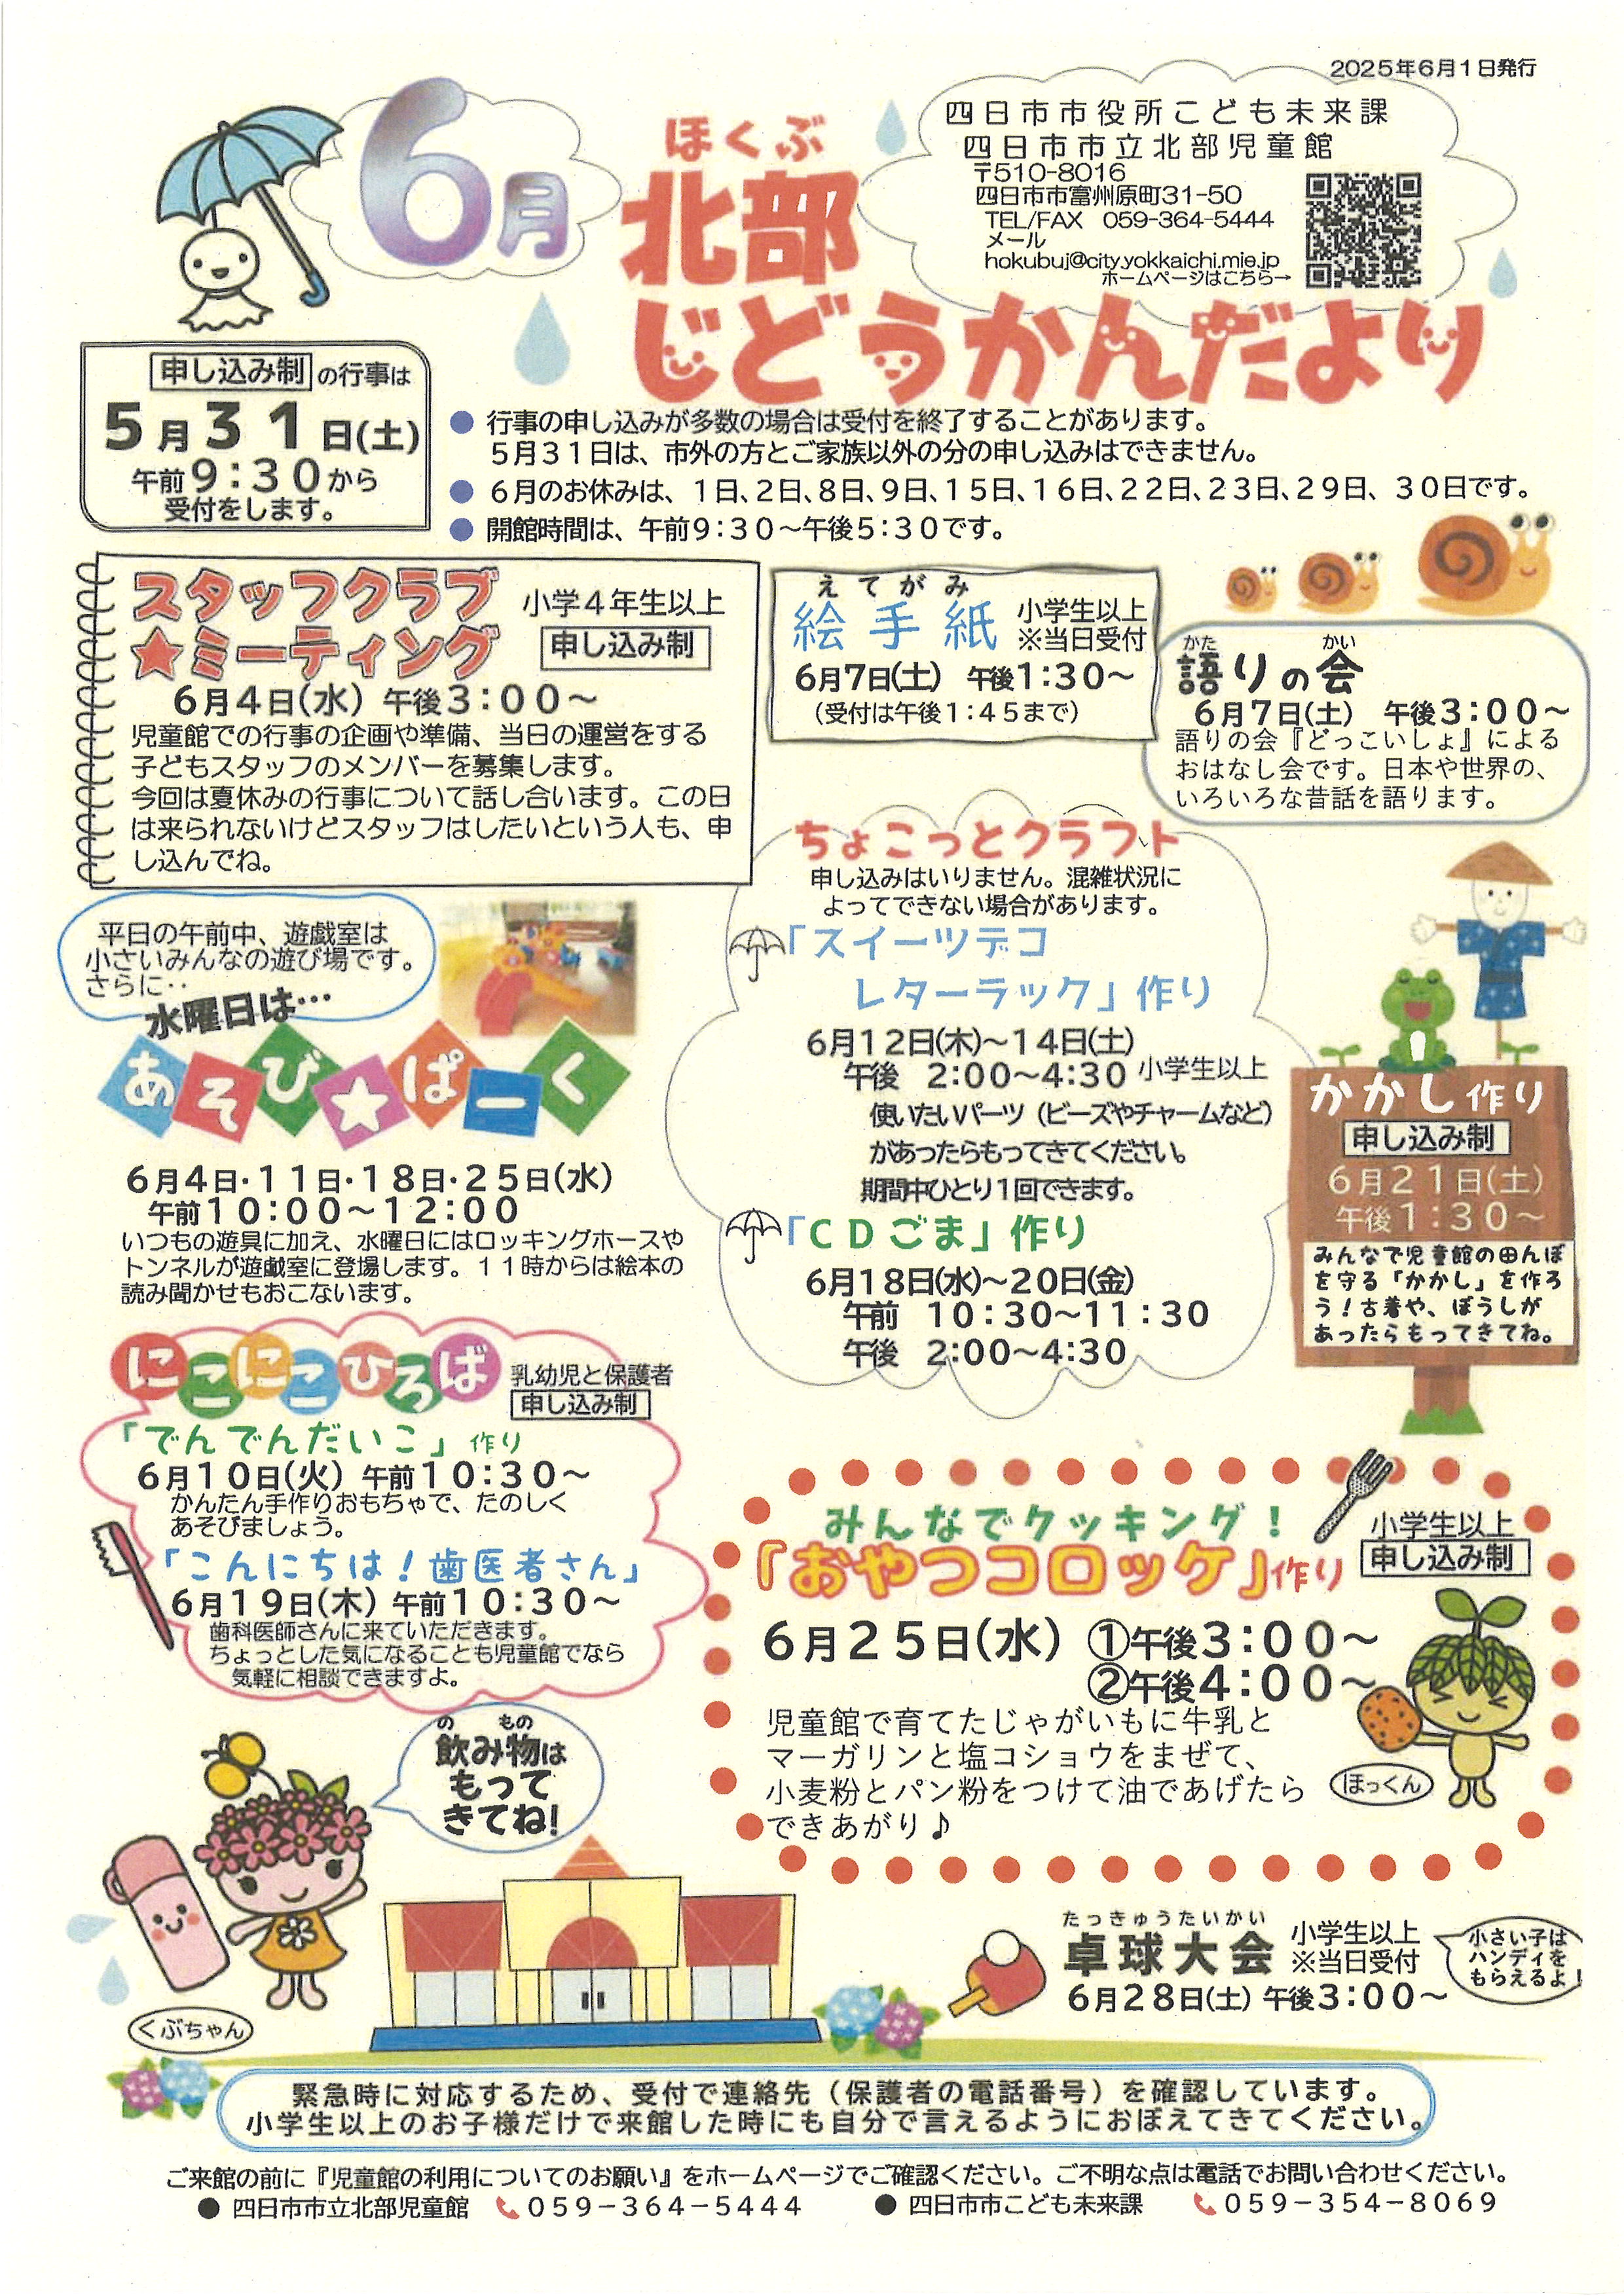 2025年6月1日発行
6月
ほくぶ
北部
じどうかんだより
四日市市役所こども未来課
四日市市立北部児童館
〒510-8016
四日市市富州原町31-50
TEL/FAX 059-364-5444
メール
hokubuj@city.yokkaichi.mie.jp
ホームページはこちら→
申し込み制の行事は
5月31日(土)
午前9:30から
受付をします。
● 行事の申し込みが多数の場合は受付を終了することがあります。
5月31日は、市外の方とご家族以外の分の申し込みはできません。
● 6月のお休みは、1日、2日、8日、9日、15日、16日、22日、23日、29日、30日です。
● 開館時間は、午前9:30～午後5:30です。
スタッフクラブ
★ミーティング
小学4年生以上
申し込み制
6月4日(水) 午後3:00～
児童館での行事の企画や準備、当日の運営をする
子どもスタッフのメンバーを募集します。
今回は夏休みの行事について話し合います。この日
は来られないけどスタッフはしたいという人も、申
し込んでね。
えてがみ
絵手紙
小学生以上
※当日受付
6月7日(土) 午後1:30～
(受付は午後1:45まで)
かた かい
語りの会
6月7日(土) 午後3:00～
語りの会『どっこいしょ』による
おはなし会です。日本や世界の、
いろいろな昔話を語ります。
平日の午前中、遊戯室は
小さいみんなの遊び場です。
さらに‥
水曜日は…
あそび★ぱーく
6月4日・11日・18日・25日(水)
午前10:00～12:00
いつもの遊具に加え、水曜日にはロッキングホースや
トンネルが遊戯室に登場します。11時からは絵本の
読み聞かせもおこないます。
ちょこっとクラフト
申し込みはいりません。混雑状況に
よってできない場合があります。
「スイーツデコ
レターラック」作り
6月12日(木)～14日(土)
午後 2:00～4:30 小学生以上
使いたいパーツ（ビーズやチャームなど）
があったらもってきてください。
期間中ひとり1回できます。
「CDごま」作り
6月18日(水)～20日(金)
午前 10:30～11:30
午後 2:00～4:30
かかし作り
申し込み制
6月21日(土)
午後1:30～
みんなで児童館の田んぼ
を守る「かかし」を作ろ
う！古着や、ぼうしが
あったらもってきてね。
にこにこひろば
乳幼児と保護者
申し込み制
「でんでんだいこ」作り
6月10日(火) 午前10:30～
かんたん手作りおもちゃで、たのしく
あそびましょう。
「こんにちは！歯医者さん」
6月19日(木) 午前10:30～
歯科医師さんに来ていただきます。
ちょっとした気になることも児童館でなら
気軽に相談できますよ。
みんなでクッキング！
『おやつコロッケ』作り
小学生以上
申し込み制
6月25日(水) ①午後3:00～
②午後4:00～
児童館で育てたじゃがいもに牛乳と
マーガリンと塩コショウをまぜて、
小麦粉とパン粉をつけて油であげたら
できあがり♪
ほっくん
の もの
飲み物は
もって
きてね!
くぶちゃん
たっきゅうたいかい
卓球大会
小学生以上
※当日受付
6月28日(土) 午後3:00～
小さい子は
ハンディを
もらえるよ！
緊急時に対応するため、受付で連絡先（保護者の電話番号）を確認しています。
小学生以上のお子様だけで来館した時にも自分で言えるようにおぼえてきてください。
ご来館の前に『児童館の利用についてのお願い』をホームページでご確認ください。ご不明な点は電話でお問い合わせください。
● 四日市市立北部児童館 059－364－5444 ● 四日市市こども未来課 059－354－8069